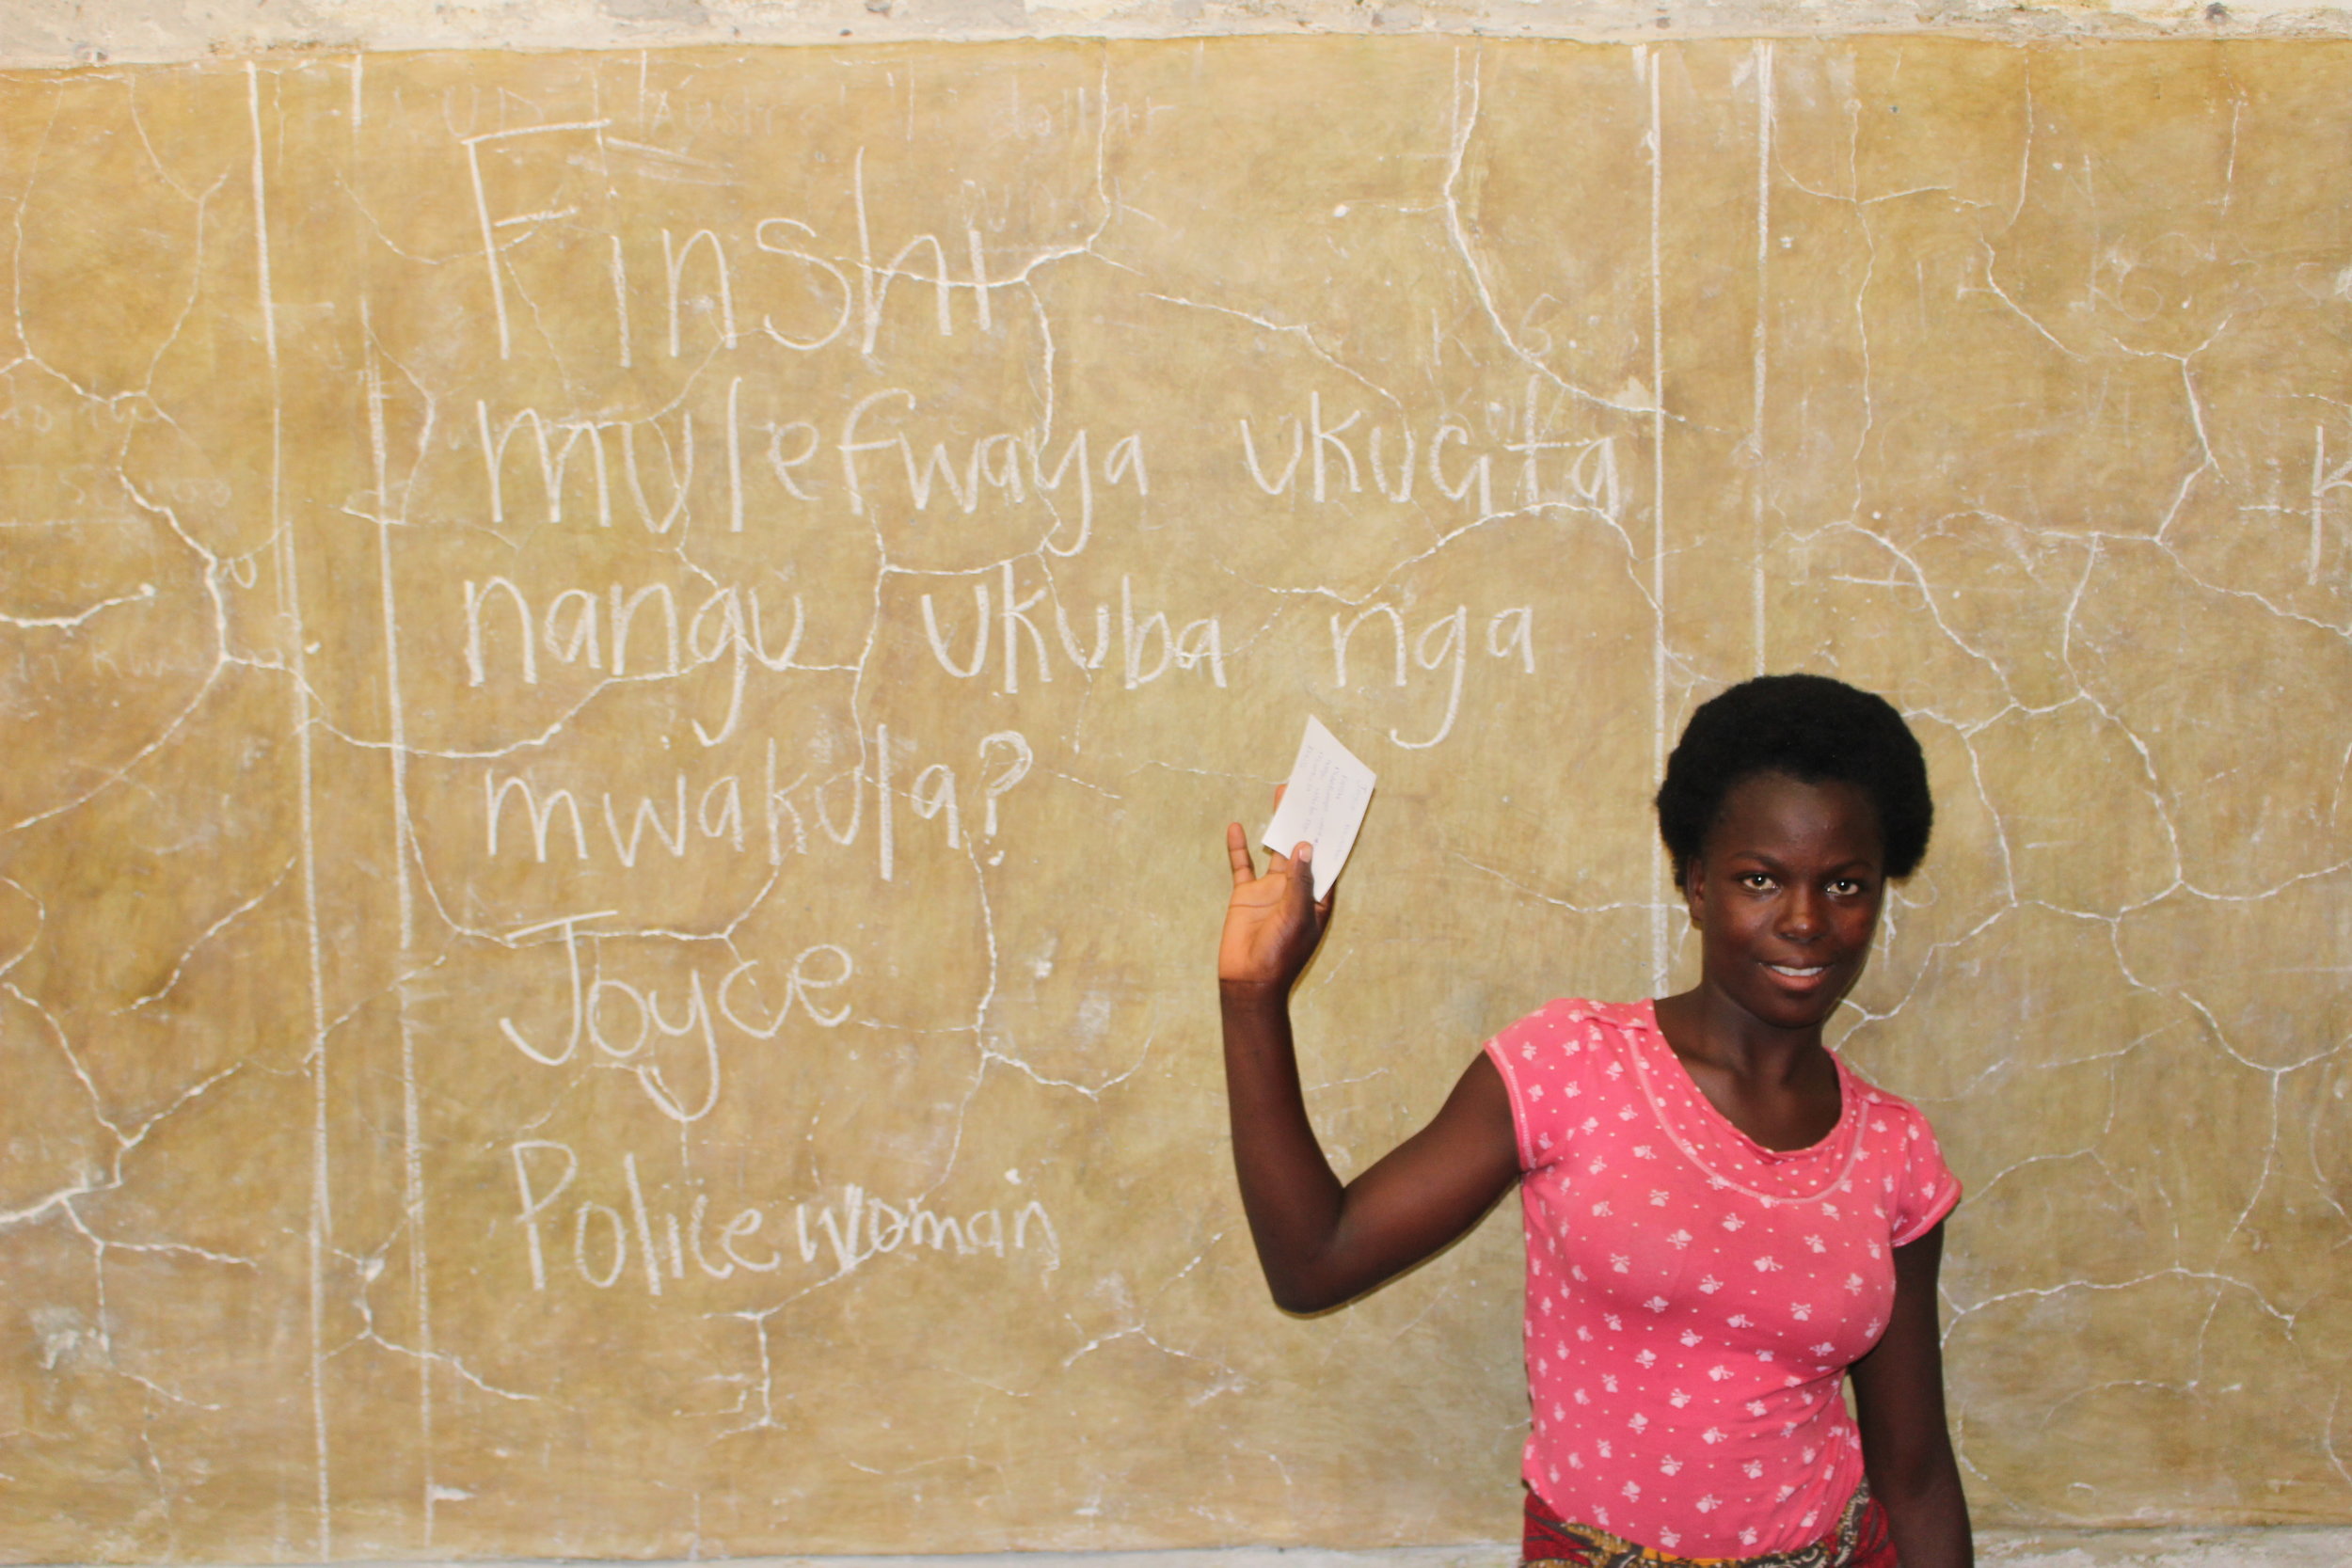 Finshi
mulefwaya ukucita
nangu ukuba nga
mwakula?
Joyce
Policewoman